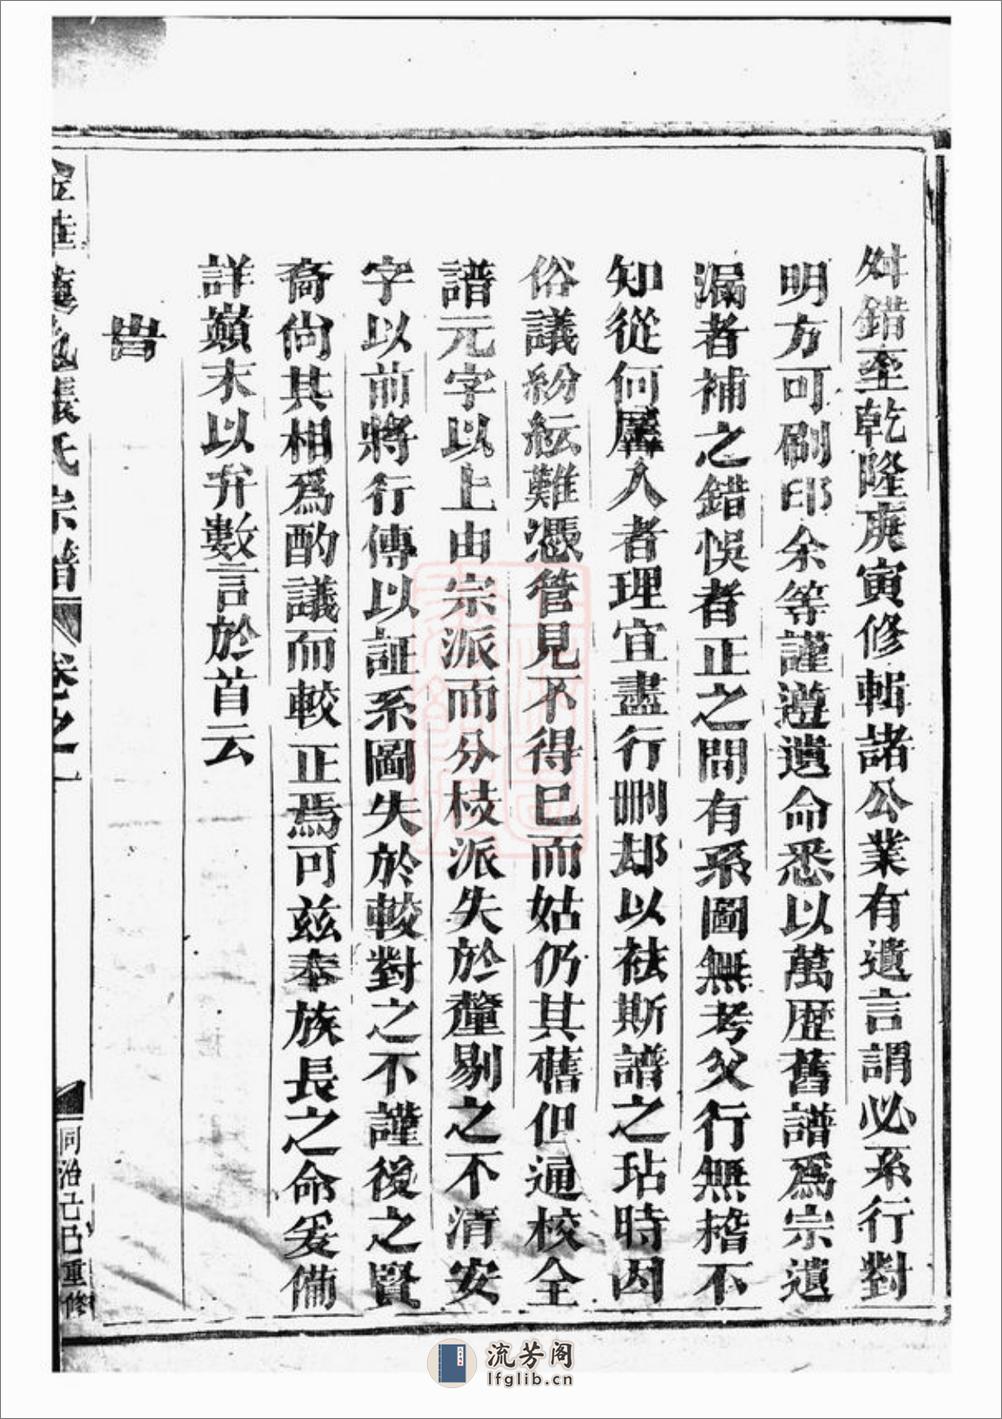 舛錯至乾隆庚寅修輯諸公業有遺言謂必系行對
明方可刷印余等謹遵遺命悉以萬歴舊譜爲宗遺
漏者補之錯悞者正之間有系圖無考父行無稽不
知從何羼入者理宜盡行刪却以袪斯譜之玷時因
俗議紛紜難憑管見不得已而姑仍其舊但通校全
譜元字以上由宗派而分枝派失於釐剔之不清安
字以前將行傳以証系圖失於較對之不謹後之賢
裔尙其相爲酌議而較正焉可兹奉族長之命爰備
詳巔末以弁數言於首云
旹
張氏宗譜
卷之一
同治己巳重修
流芳阁
lfglib.cn